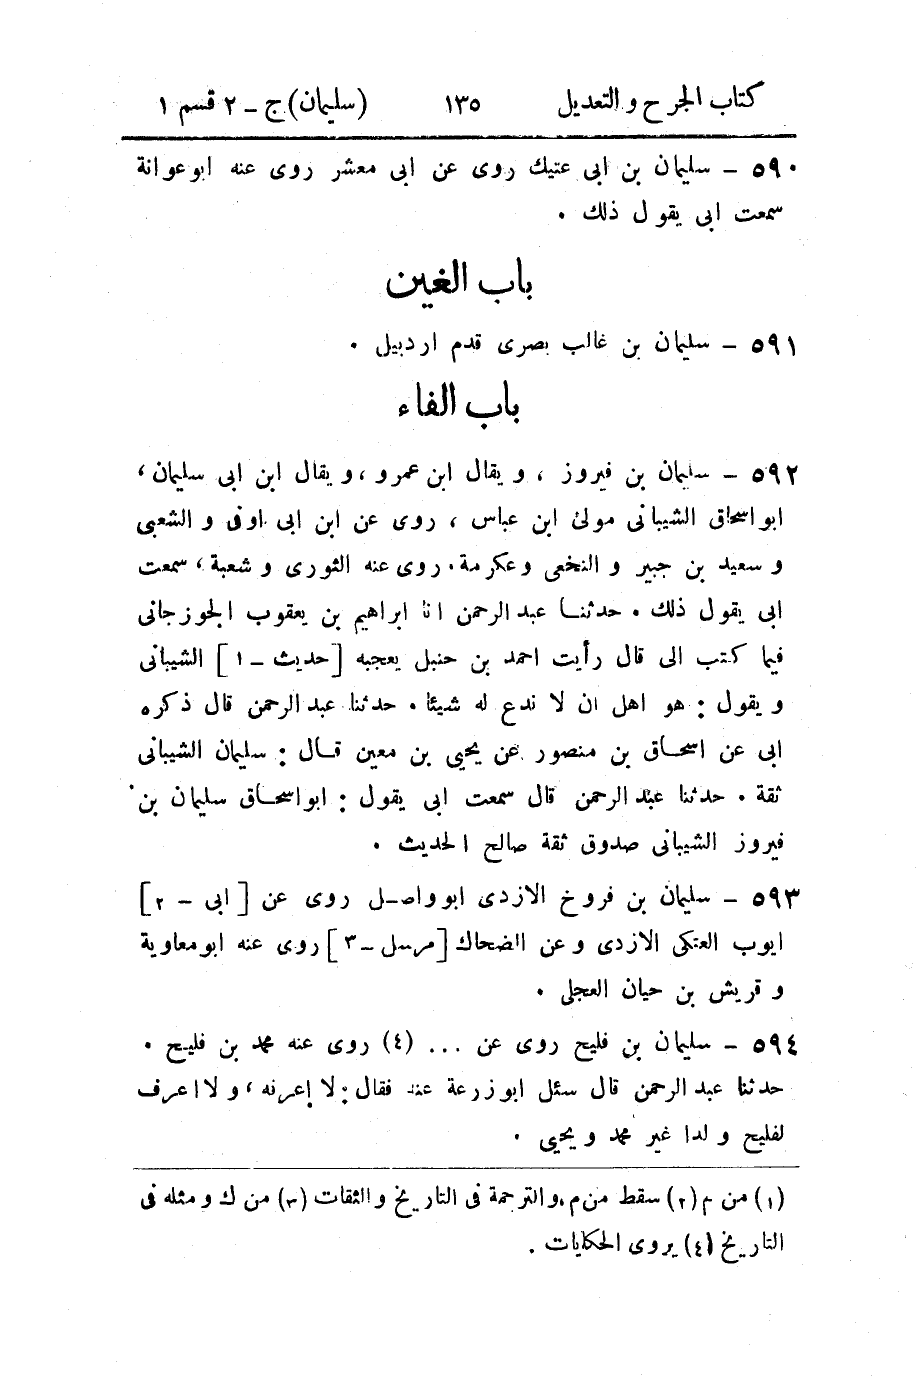 كتاب الجرح والتعديل ١٣٥ (سليمان) ج - ٢ قسم ١
٥٩٠ - سليمان بن ابى عتيك روى عن ابى معشر روى عنه ابو عوانة
سمعت ابى يقول ذلك .
باب الغين
٥٩١ - سليمان بن غالب بصرى قدم اردبيل .
باب الفاء
٥٩٢ - سليمان بن فيروز ، و يقال ابن عمرو ، و يقال ابن ابى سليمان ،
ابو اسحاق الشيبانى مولى ابن عباس ، روى عن ابن ابى اوفى و الشعبى
و سعيد بن جبير و النخعى و عكرمة . روى عنه الثورى و شعبة ، سمعت
ابى يقول ذلك . حدثنا عبد الرحمن انا ابراهيم بن يعقوب الجوزجانى
فيما كتب الى قال رأيت احمد بن حنبل يعجبه [حديث - ١] الشيبانى
و يقول : هو اهل ان لا ندع له شيئا . حدثنا عبد الرحمن قال ذكره
ابى عن اسحاق بن منصور عن يحيى بن معين قال : سليمان الشيبانى
ثقة . حدثنا عبد الرحمن قال سمعت ابى يقول : ابو اسحاق سليمان بن
فيروز الشيبانى صدوق ثقة صالح الحديث .
٥٩٣ - سليمان بن فروخ الازدى ابو واصل روى عن [ابى - ٢]
ايوب العتكى الازدى و عن الضحاك [مرسل - ٣] روى عنه ابو معاوية
و قريش بن حيان العجلى .
٥٩٤ - سليمان بن فليح روى عن ... (٤) روى عنه محمد بن فليح .
حدثنا عبد الرحمن قال سئل ابو زرعة عنه فقال : لا إعرفه ، و لا اعرف
لفليح ولدا غير محمد و يحيى .
(١) من م (٢) سقط من م ، والترجمة فى التاريخ والثقات (٣) من ك و مثله فى
التاريخ (٤) يروى الحكايات .